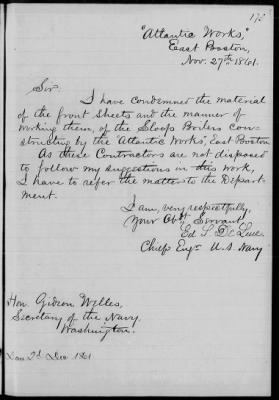 "Atlantic Works"
East Boston,
Nov. 27th 1861.
Sir.
I have condemned the material
of the front sheets and the manner of
working them, of the Sloops Boilers con-
structing by the "Atlantic Works", East Boston
As these Contractors are not disposed
to follow my suggestions in this work,
I have to refer the matter to the Depart-
ment.
I am, very respectfully,
Your Obt Servant,
Ed S. De Luce
Chief Engr U.S. Navy
Hon. Gideon Welles,
Secretary of the Navy,
Washington.
2d Dec 1861